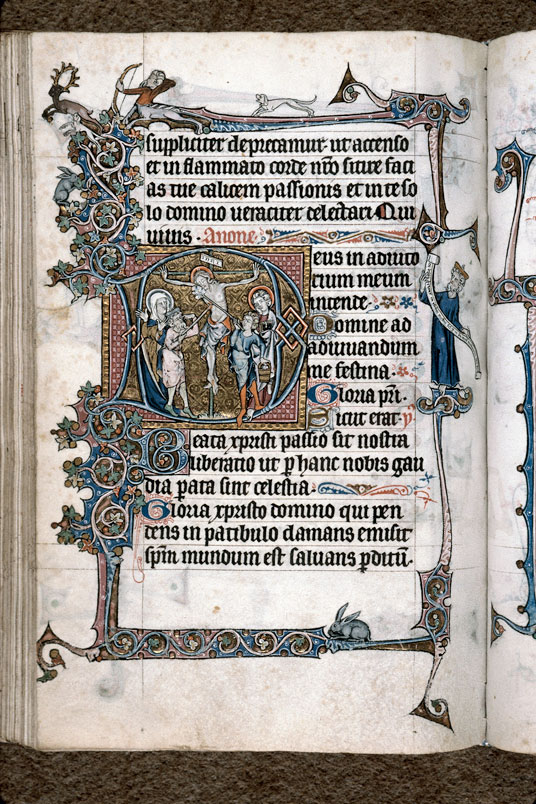 suppliciter deprecamur ut accenso
et in flammato corde nr̄o sitire faci
as tue calicem passionis et in te so
lo domino veraciter delectari. Qui
vivis. A none.
Deus in adiuto
rium meum
intende.
Domine ad
adiuvandum
me festina.
Gloria pr̄i.
Sicut erat. yͫ
Beata xp̄isti passio sit nostra
liberatio ut ꝑ hanc nobis gau
dia ꝑata sint celestia.
Gloria xp̄isto domino qui pen
dens in patibulo clamans emisit
sp̄m mundum est salvans ꝑditū.